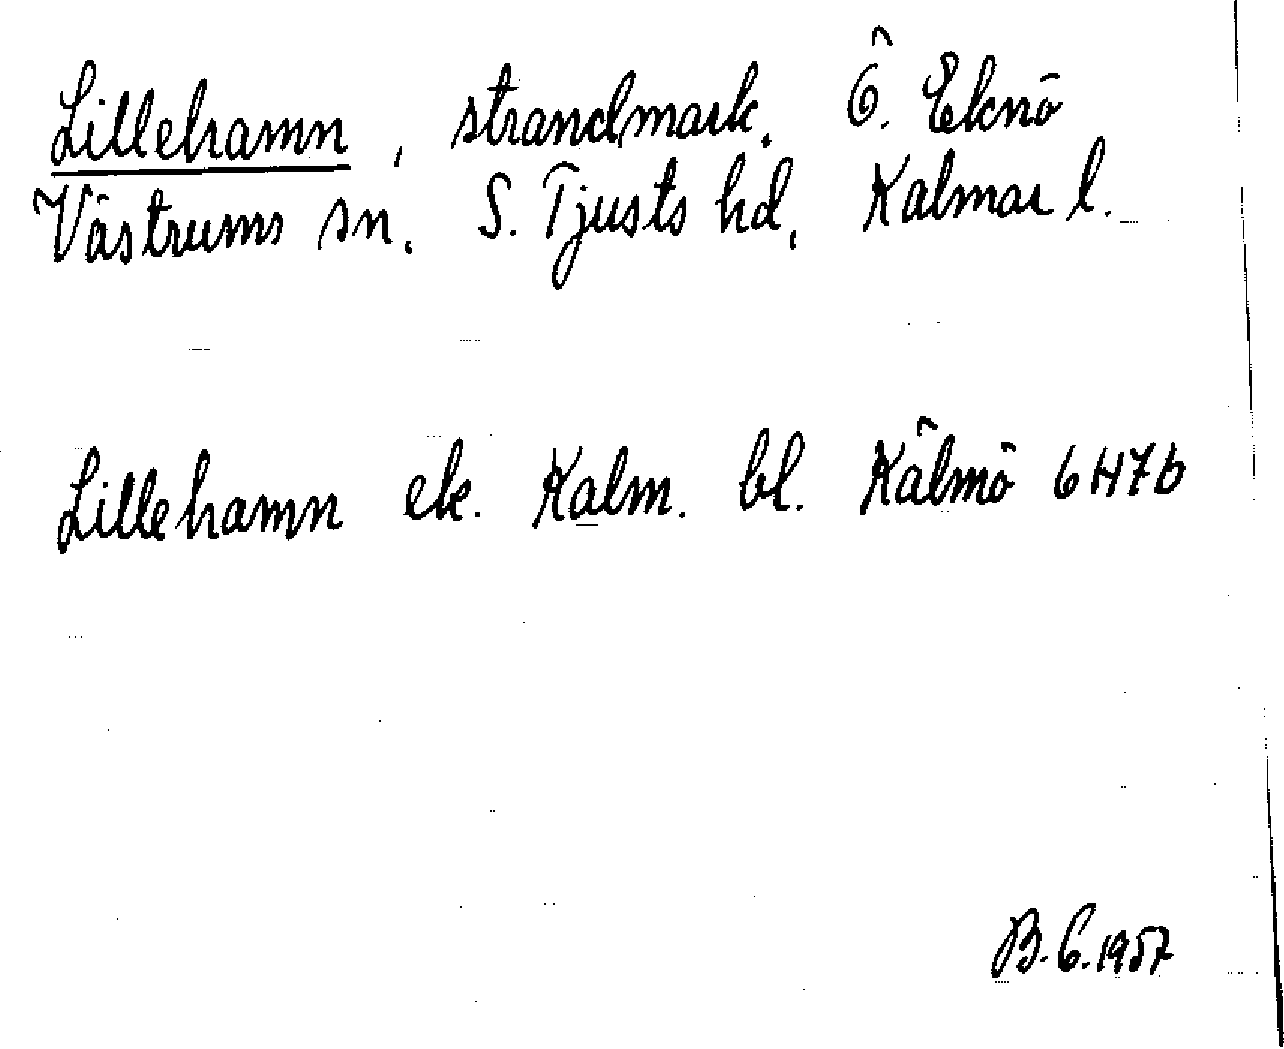 Lillehamn, strandmark. Ö. Eknö
Västrums sn. S. Tjusts hd. Kalmar l.
Lillehamn ek. Kalm. bl. Kålmö 6H7b
B.G. 1957